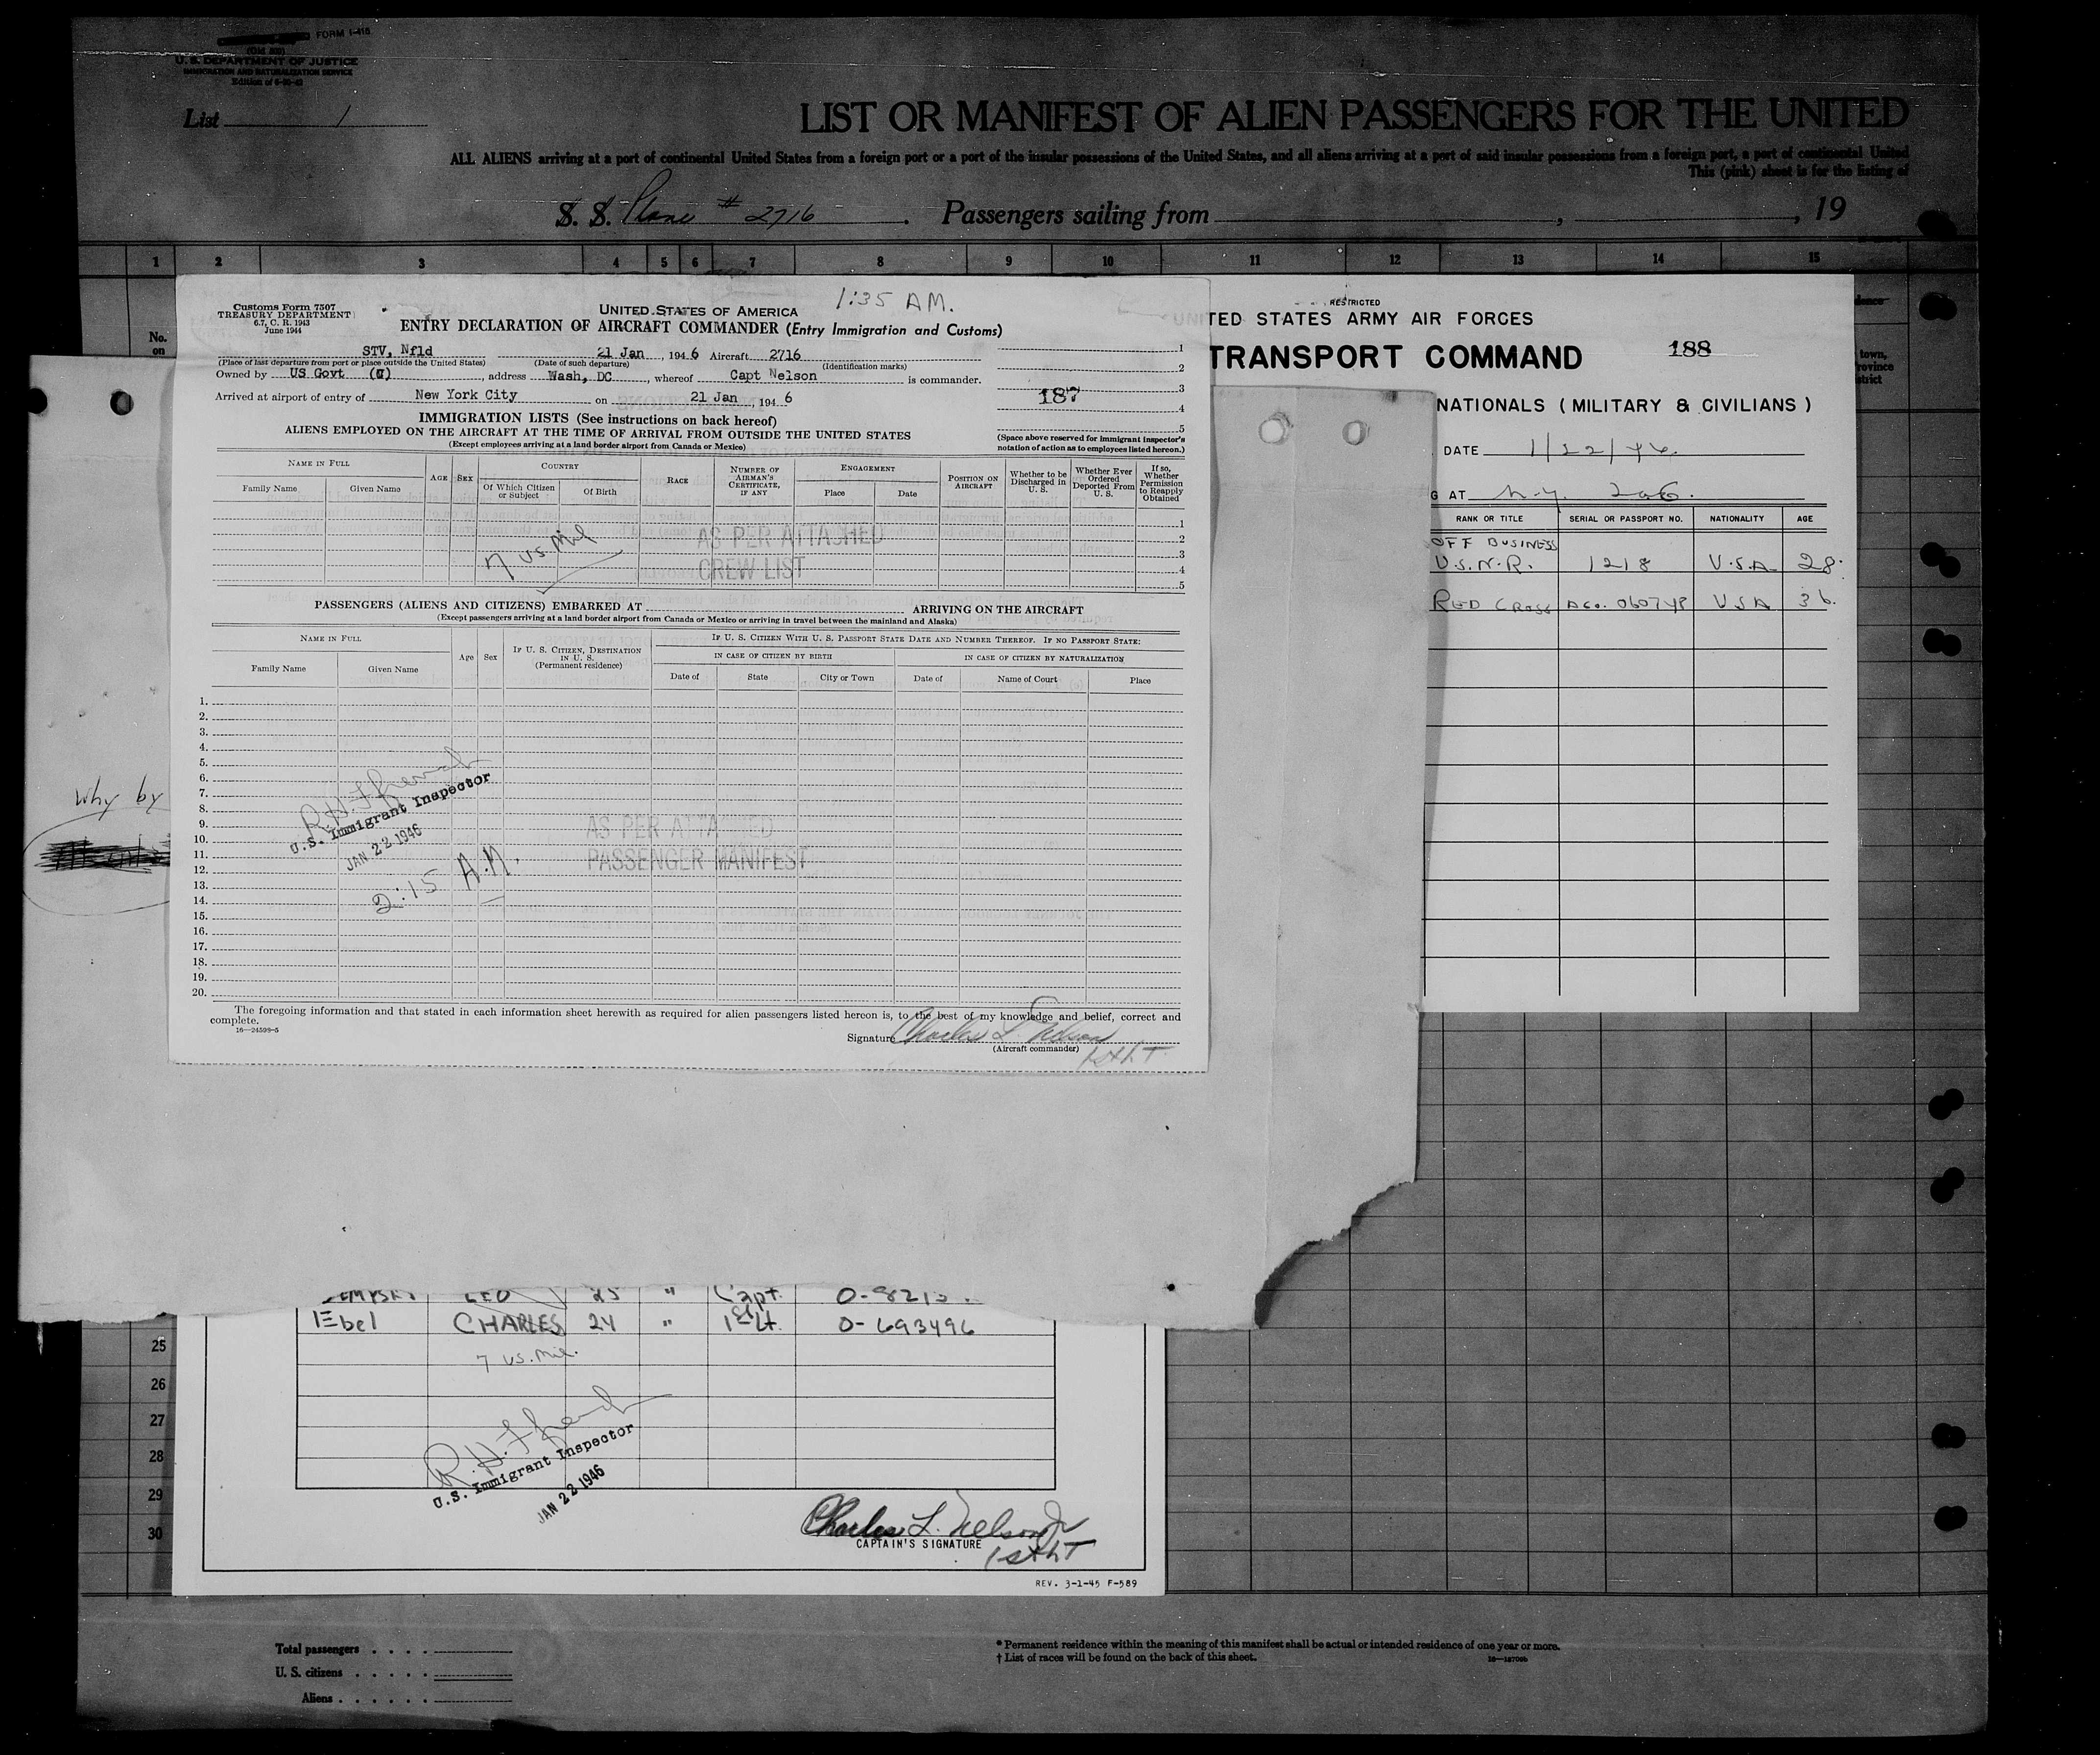 FORM I-415
U. S. DEPARTMENT OF JUSTICE
IMMIGRATION AND NATURALIZATION SERVICE
List 1
LIST OR MANIFEST OF ALIEN PASSENGERS FOR THE UNITED
ALL ALIENS arriving at a port of continental United States from a foreign port or a port of the insular possessions of the United States, and all aliens arriving at a port of said insular possessions from a foreign port, a port of continental United
This (pink) sheet is for the listing of
S. S. Plane # 2716 . Passengers sailing from , , 19
1 2 3 4 5 6 7 8 9 10 11 12 13 14 15
No. on
Customs Form 7507
TREASURY DEPARTMENT
6.7, C. R. 1943
June 1944
UNITED STATES OF AMERICA
1:35 AM.
ENTRY DECLARATION OF AIRCRAFT COMMANDER (Entry Immigration and Customs)
STV, Nfld 21 Jan , 194 6 Aircraft 2716
(Place of last departure from port or place outside the United States) (Date of such departure) (Identification marks)
Owned by US Govt , address Wash, DC , whereof Capt Nelson is commander.
Arrived at airport of entry of New York City on 21 Jan , 194 6
1
2
3
4
5
187
IMMIGRATION LISTS (See instructions on back hereof)
ALIENS EMPLOYED ON THE AIRCRAFT AT THE TIME OF ARRIVAL FROM OUTSIDE THE UNITED STATES
(Except employees arriving at a land border airport from Canada or Mexico)
(Space above reserved for immigrant inspector's notation of action as to employees listed hereon.)
NAME IN FULL AGE SEX COUNTRY RACE NUMBER OF AIRMAN'S CERTIFICATE, IF ANY ENGAGEMENT POSITION ON AIRCRAFT Whether to be Discharged in U. S. Whether Ever Ordered Deported From U. S. If so, Whether Permission to Reapply Obtained
Family Name Given Name Of Which Citizen or Subject Of Birth Place Date
1
2
3
4
5
7 US Mil
AS PER ATTACHED
CREW LIST
PASSENGERS (ALIENS AND CITIZENS) EMBARKED AT ARRIVING ON THE AIRCRAFT
(Except passengers arriving at a land border airport from Canada or Mexico or arriving in travel between the mainland and Alaska)
NAME IN FULL Age Sex IF U. S. CITIZEN, DESTINATION IN U. S. (Permanent residence) IF U. S. CITIZEN WITH U. S. PASSPORT STATE DATE AND NUMBER THEREOF. IF NO PASSPORT STATE:
IN CASE OF CITIZEN BY BIRTH IN CASE OF CITIZEN BY NATURALIZATION
Family Name Given Name Date of State City or Town Date of Name of Court Place
1.
2.
3.
4.
5.
6.
7.
8.
9.
10.
11.
12.
13.
14.
15.
16.
17.
18.
19.
20.
U.S. Immigrant Inspector
JAN 22 1946
2:15 A.M.
AS PER ATTACHED
PASSENGER MANIFEST
The foregoing information and that stated in each information sheet herewith as required for alien passengers listed hereon is, to the best of my knowledge and belief, correct and
complete.
16—24599-5
Signature Charles L. Nelson
(Aircraft commander)
1st LT
why by
RESTRICTED
TED STATES ARMY AIR FORCES
TRANSPORT COMMAND 188
NATIONALS (MILITARY & CIVILIANS)
DATE 1/22/46.
G AT N.Y.
RANK OR TITLE SERIAL OR PASSPORT NO. NATIONALITY AGE
OFF BUSINESS
U.S.N.R. 1218 U.S.A. 28
RED CROSS USA 36.
town,
Province
district
LEO 25 " Capt.
Ebel CHARLES 24 " 1st Lt. O-693496
7 US. Mil.
U.S. Immigrant Inspector
JAN 22 1946
Charles L. Nelson Jr
CAPTAIN'S SIGNATURE
1st LT
REV. 3-1-45 F-589
25
26
27
28
29
30
Total passengers
U. S. citizens
Aliens
* Permanent residence within the meaning of this manifest shall be actual or intended residence of one year or more.
† List of races will be found on the back of this sheet.